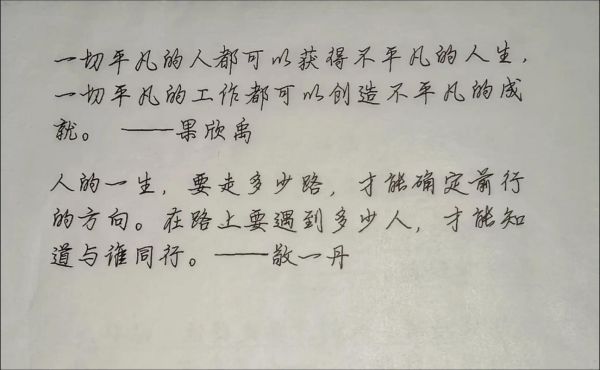 一切平凡的人都可以获得不平凡的人生，
一切平凡的工作都可以创造不平凡的成
就。 ——果欣禹
人的一生，要走多少路，才能确定前行
的方向。在路上要遇到多少人，才能知
道与谁同行。——敬一丹